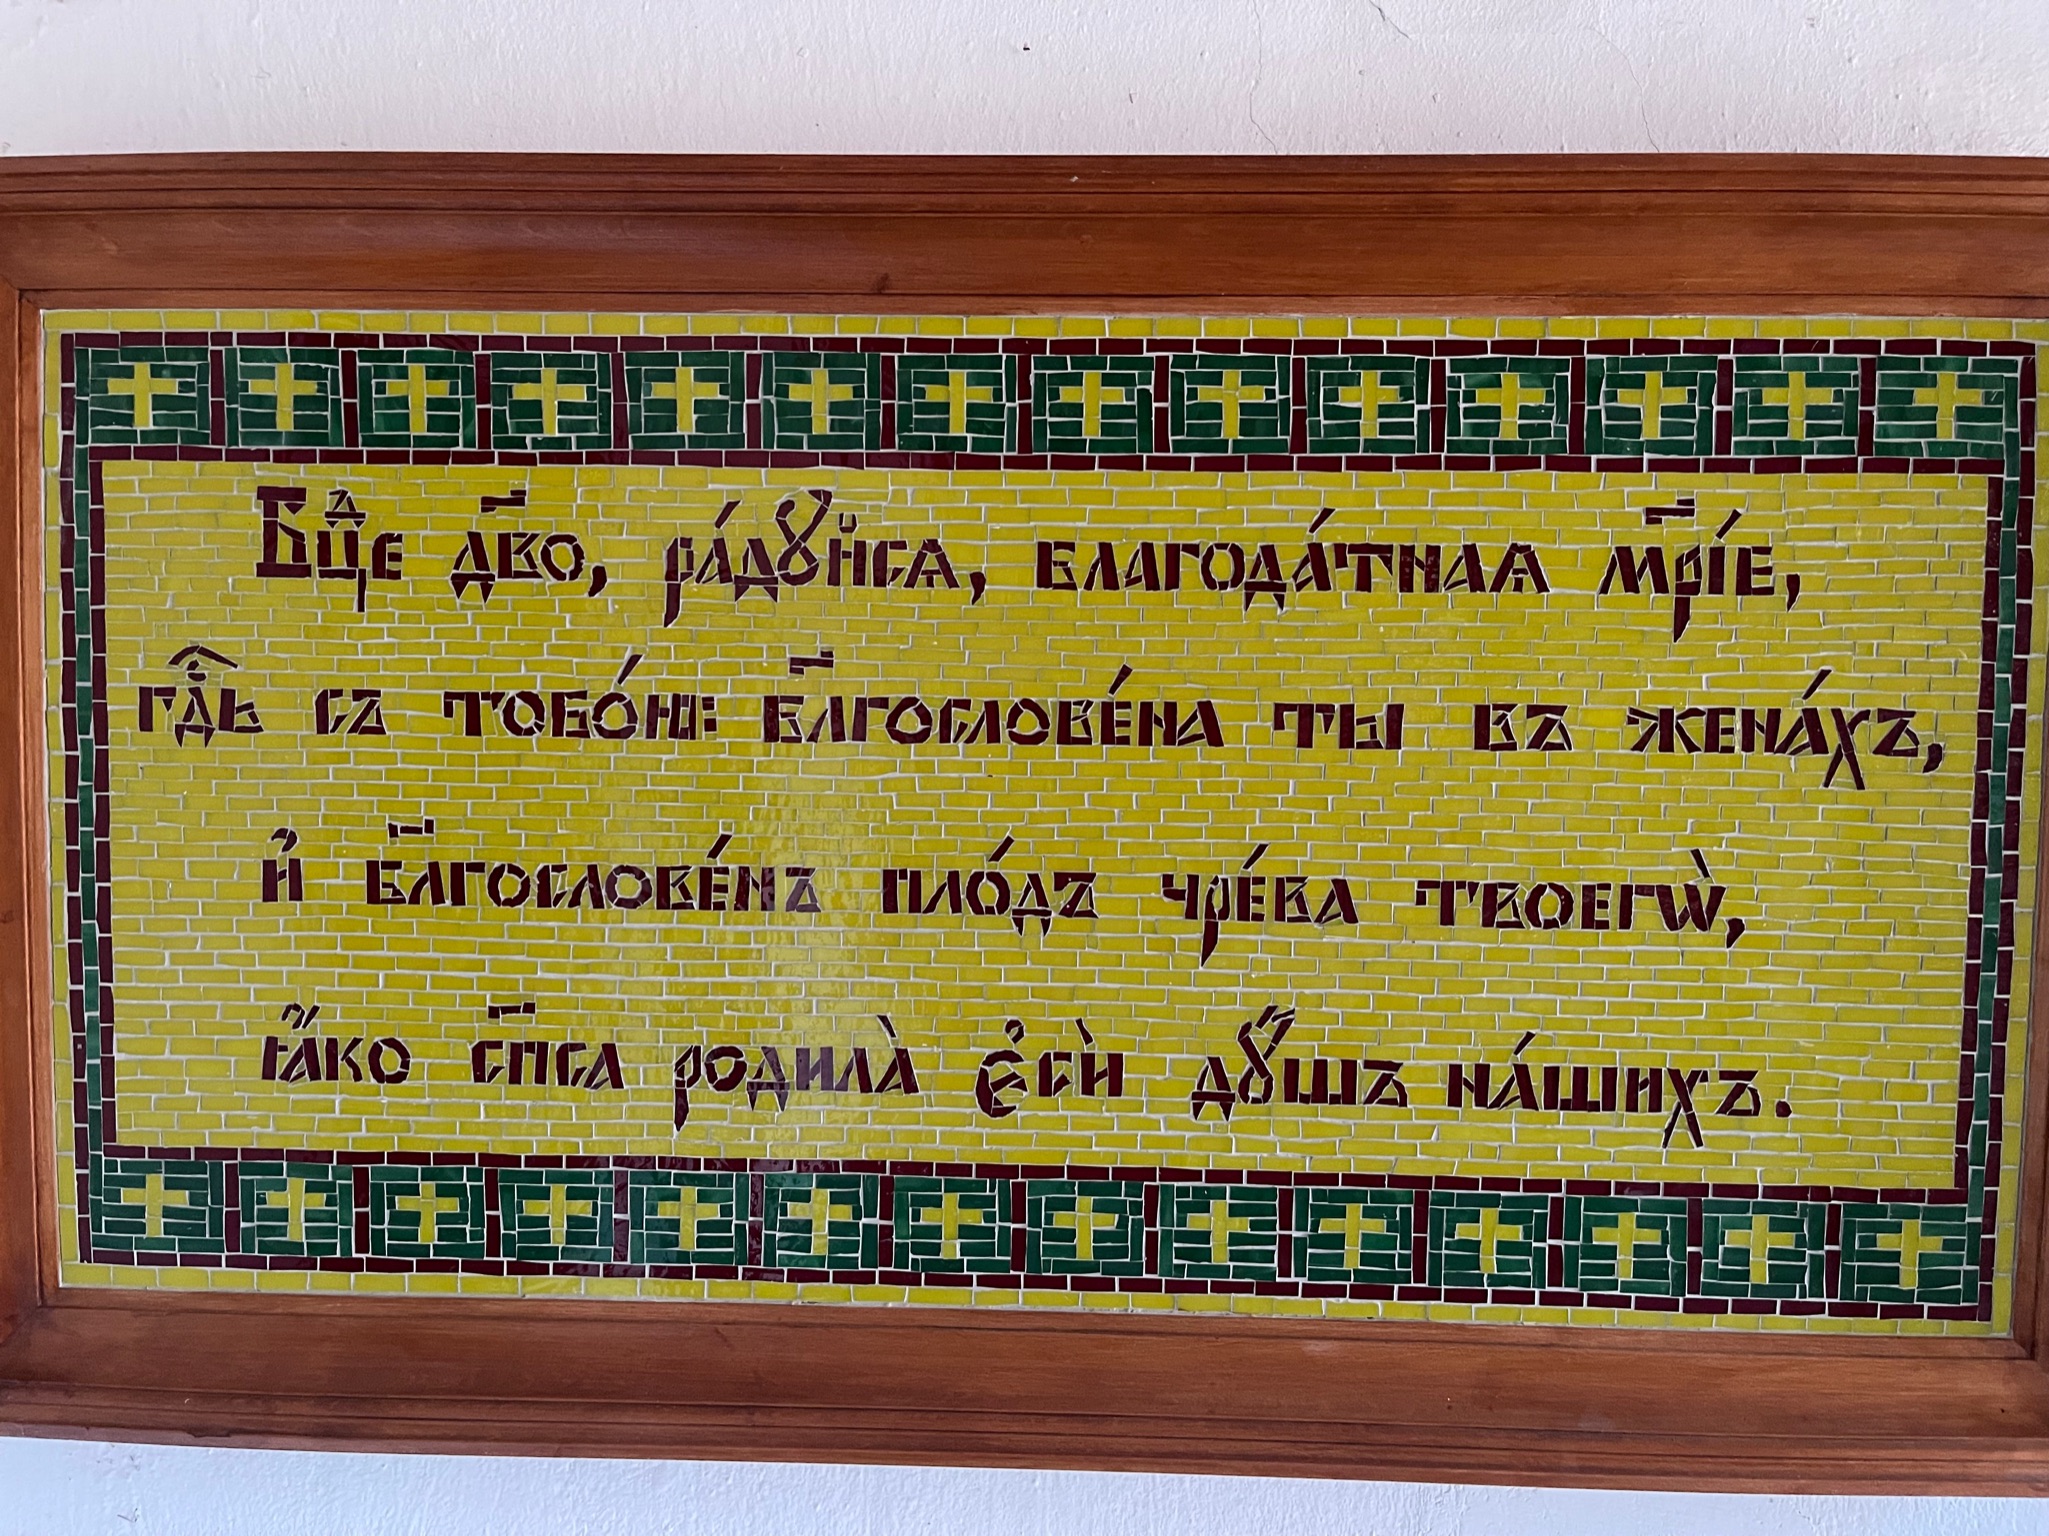 Бцⷣе дв҃о, ра́дꙋйсѧ, благода́тнаѧ мр҃і́е,
гдⷭ҇ь съ тобо́ю: бл҃гослове́на ты въ жена́хъ,
и҆ бл҃гослове́нъ пло́дъ чре́ва твоегѡ̀,
ꙗ҆́кѡ сп҃са родила̀ є҆сѝ дꙋ́шъ на́шихъ.